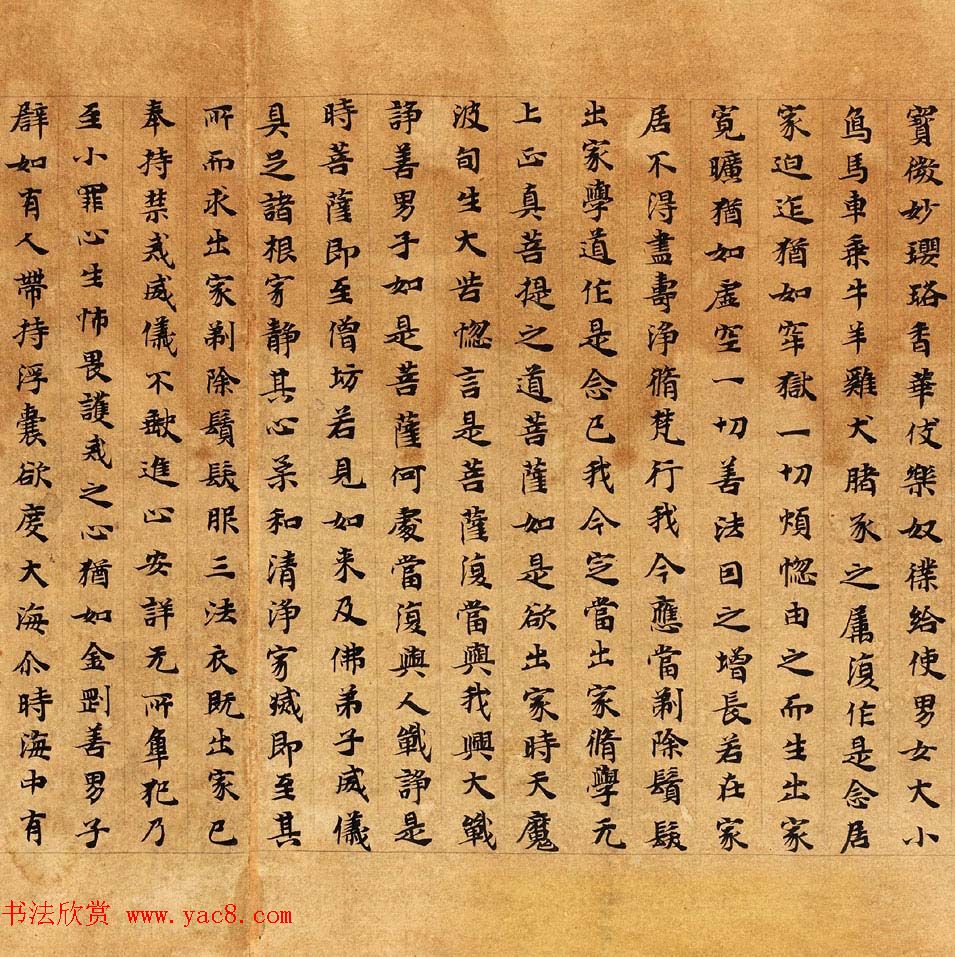 寶微妙瓔珞香華伎樂奴僕給使男女大小
鳥馬車乘牛羊雞犬賭豕之属復作是念居
家迫迮猶如牢獄一切煩惚由之而生出家
寬曠猶如虛空一切善法因之增長若在家
居不得盡壽淨脩梵行我今應當剃除鬚髮
出家學道作是念已我今定當出家脩學无
上正真菩提之道菩薩如是欲出家時天魔
波旬生大苦惚言是菩薩復當與我興大戰
諍善男子如是菩薩何處當復與人戰諍是
時菩薩即至僧坊若見如来及佛弟子威儀
具足諸根宑静其心柔和清淨宑滅即至其
所而求出家剃除鬚髮服三法衣既出家已
奉持禁戒威儀不缺進止安詳无所犯乃
至小罪心生怖畏護戒之心猶如金剛善男子
辟如有人帶持浮囊欲度大海尒時海中有
书法欣赏 www.yac8.com